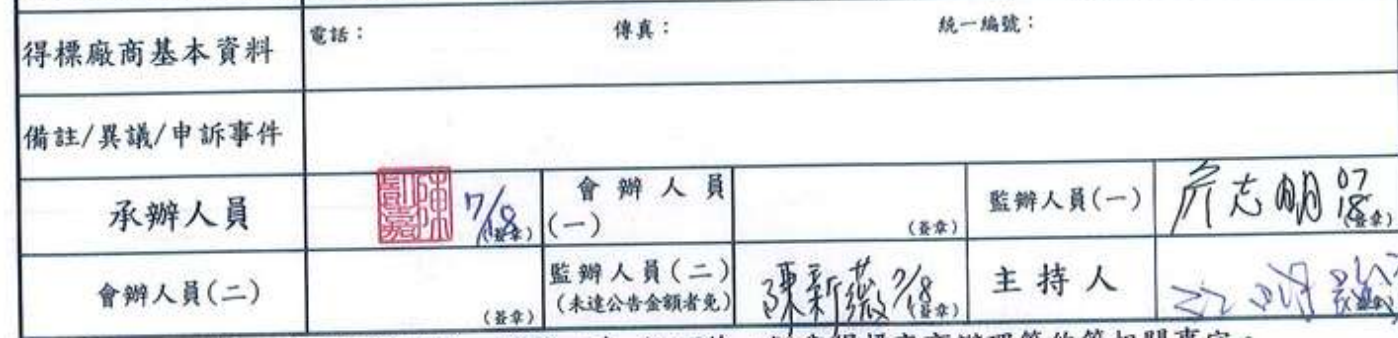 得標廠商基本資料
電話： 傳真： 統一編號：
備註/異議/申訴事件
承辦人員 7/18 (簽章) 會辦人員(一) (簽章) 監辦人員(一) 志明 07/18 (簽章)
會辦人員(二) (簽章) 監辦人員(二) (未達公告金額者免) 陳新薇 7/18 (簽章) 主持人
得標廠商辦理簽約等相關事宜。